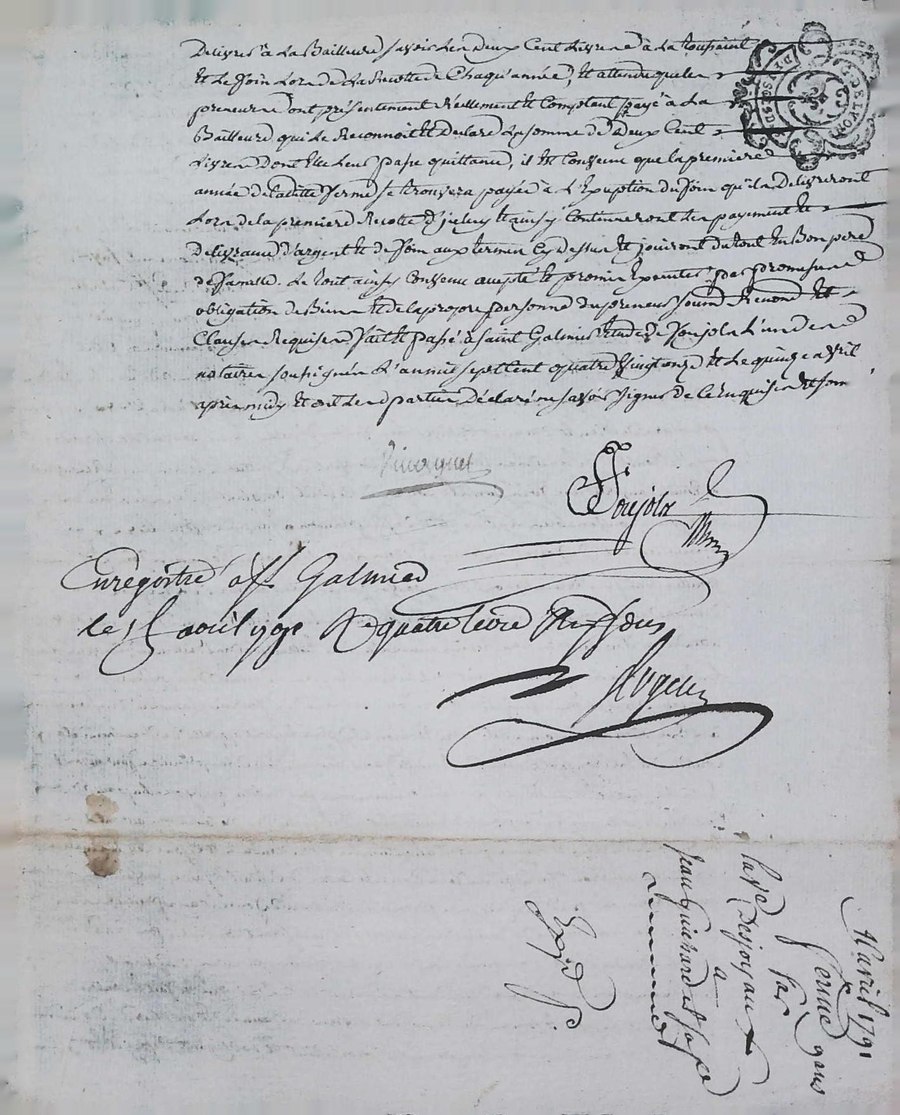 Delivrer à La Bailleure savoir Les deux Cent Livres à La toussaint
Et Le foin Lors de La Recolte de Chaqu'année, Et attendu que les
preneurs ont présentement Reellement Et Comptant payé à La
Bailleure qui Le Reconnoit Et declare La somme de deux Cent
Livres Dont Elle Leur passe quittance, il Est Convenu que la première
année de Ladite ferme se trouvera payée à L'Exception du foin qu'ils Delivreront
Lors de la première Recolte Et ainsy Continueront Les payement Et
Delivrance d'argent Et de foin aux termes Cy dessus Et jouiront du tout En Bon père
de famille. Le tout ainsy Convenu accepté Et promis Executer par promesse
obligation de Biens Et de la propre personne des preneurs soumis Renond. Et
Clauses Requises fait Et passé à Saint Galmier Etude de Poujols L'un des
notaires soussignés L'an mil sept cent quatre vingt onze Et Le quinze avril
après midy Et ont Les parties Déclaré ne savoir signer de ce Enquises Et som
Poujols
Enregistré a St Galmier
le 15 avril 1791 R quatre livre
15 avril 1791
ferme
par
la Ve Desjoyaux
a
jean guichard et sa fe
Expd